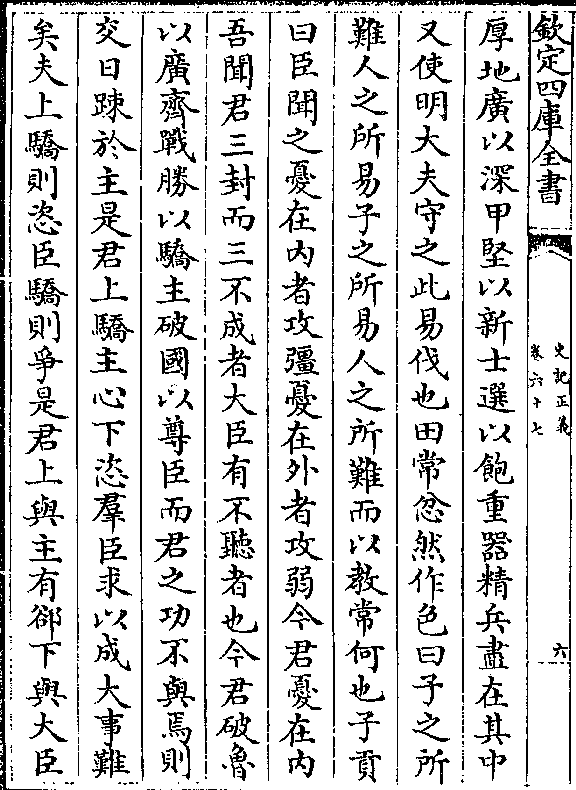 欽定四庫全書
史記正義
卷六十七
六
厚地廣以深甲堅以新士選以飽重器精兵盡在其中
又使明大夫守之此易伐也田常忿然作色曰子之所
難人之所易子之所易人之所難而以教常何也子貢
曰臣聞之憂在內者攻彊憂在外者攻弱今君憂在內
吾聞君三封而三不成者大臣有不聽者也今君破魯
以廣齊戰勝以驕主破國以尊臣而君之功不與焉則
交日踈於主是君上驕主心下恣羣臣求以成大事難
矣夫上驕則恣臣驕則爭是君上與主有郤下與大臣